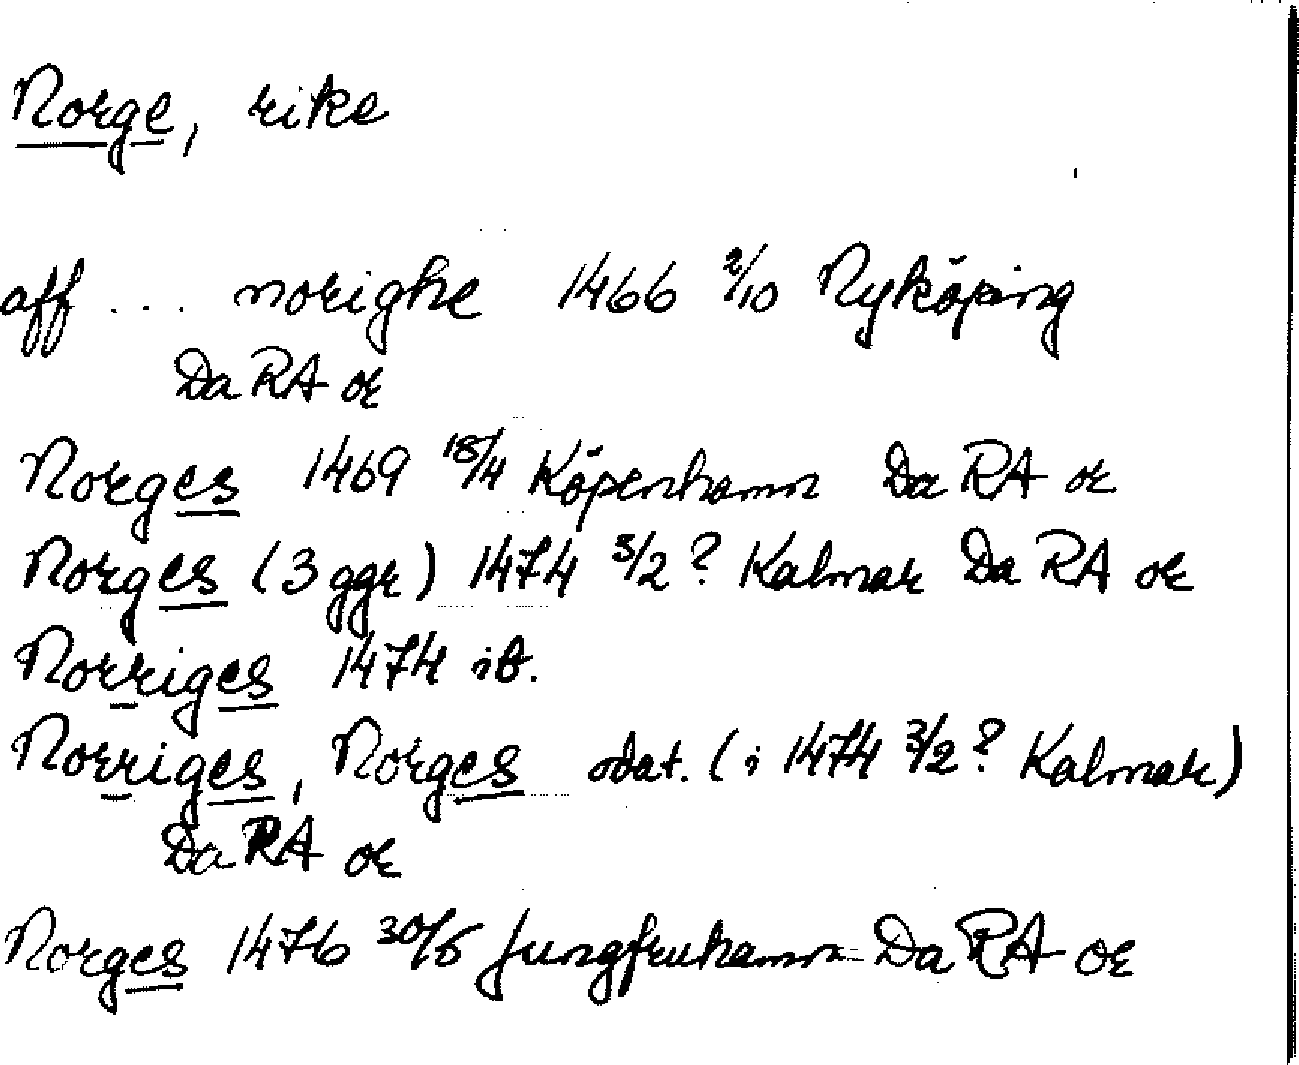 Norge, rike
aff ... norighe 1466 2/10 Nyköping
DaRA or
Norges 1469 18/4 Köpenhamn DaRA or
Norges (3 ggr) 1474 3/2? Kalmar DaRA or
Norriges 1474 ib.
Norriges, Norges odat. (i 1474 3/2? Kalmar)
DaRA or
Norges 1476 30/5 Jungfruhamn DaRA or